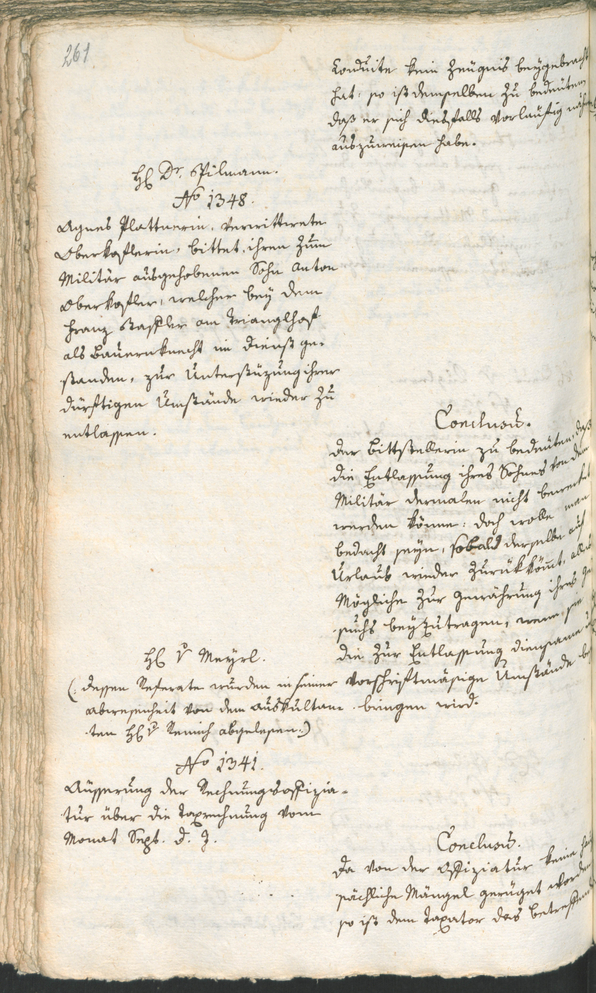 261.
Conduite kein Zeügnis beygebracht
hat: so ist demselben zu bedeuten
daß er sich diesfalls vorläufig
auszuweisen habe.
H Dr. Spilmann.
No 1348.
Agnes Plattnerin, verwittwete
Oberkoflerin, bittet, ihren zum
Militär ausgehobenen Sohn Anton
Oberkofler, welcher bey dem
Franz Stafler am Trianglhof
als Bauernknecht im Dienst ge-
standen, zur Unterstüzung ihrer
dürftigen Umstände wieder zu
entlassen.
Conclusū.
der Bittstellerin zu bedeuten, daß
die Entlassung ihres Sohnes von dem
Militär dermalen nicht bewirket
werden könne: doch wolle man
bedacht seyn, sobald derselbe auf
Urlaub wieder zurükkömt, alles
Mögliche zur Gewährung ihres
suchs beyzutragen, wenn sie
die zur Entlassung diensame
vorschriftmäsige Umstände bey
bringen wird.
H v Meyrl.
(: dessen Referate wurden in seiner
abwesenheit von dem Auskultan-
ten H v Remich abgelesen.:)
No 1341.
Äusserung der Rechnungsoffizia-
tur über die Taxrechnung vom
Monat Sept. d. J.
Conclusū.
Da von der Offiziatur keine
sächliche Mängel gerüget worden
so ist dem Taxator das betreffende